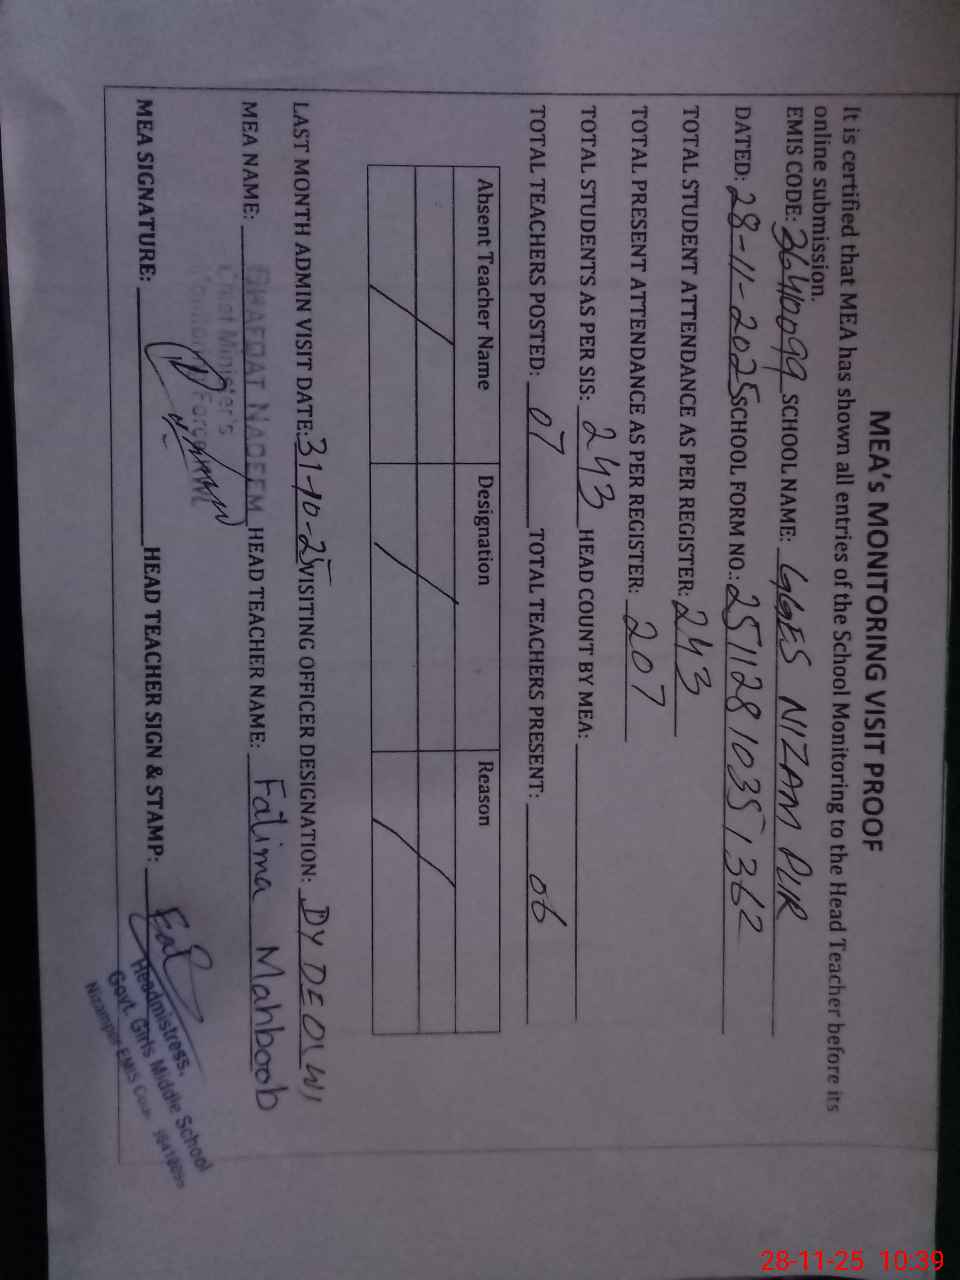 MEA's MONITORING VISIT PROOF
It is certified that MEA has shown all entries of the School Monitoring to the Head Teacher before its
online submission.
EMIS CODE: 36410099 SCHOOL NAME: GGES NIZAM PUR
DATED: 28-11-2025 SCHOOL FORM NO.: 25112810351362
TOTAL STUDENT ATTENDANCE AS PER REGISTER: 243
TOTAL PRESENT ATTENDANCE AS PER REGISTER: 207
TOTAL STUDENTS AS PER SIS: 243 HEAD COUNT BY MEA:
TOTAL TEACHERS POSTED: 07 TOTAL TEACHERS PRESENT: 06
Absent Teacher Name Designation Reason
LAST MONTH ADMIN VISIT DATE: 31-10-25 VISITING OFFICER DESIGNATION: DY DEO(W)
MEA NAME: SHAFQAT NADEEM HEAD TEACHER NAME: Fatima Mahboob
Chief Minister's
MEA SIGNATURE: HEAD TEACHER SIGN & STAMP:
Headmistress,
Govt. Girls Middle School
Nizampur EMIS Code
28-11-25 10:39